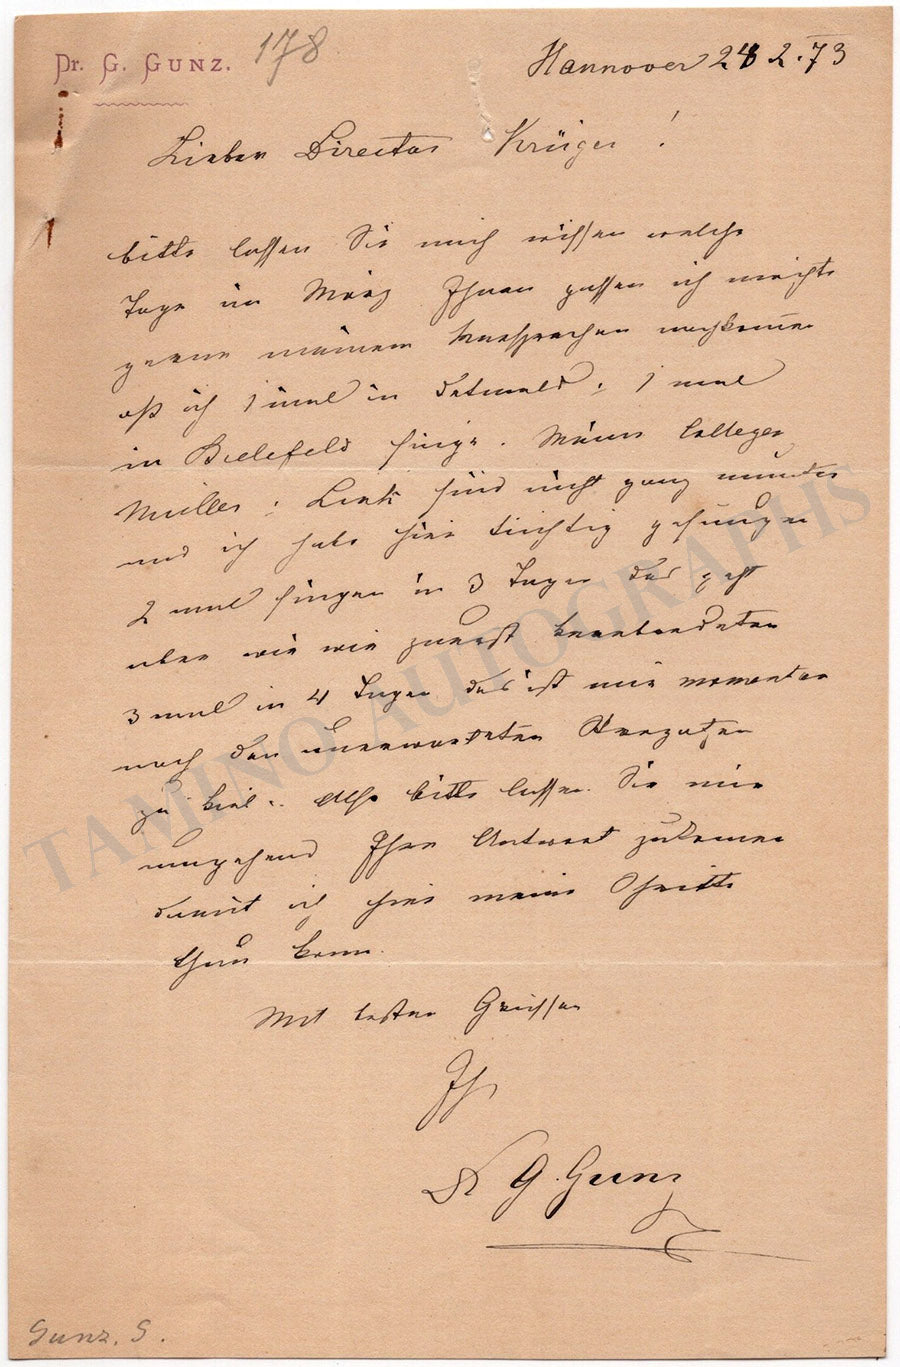 Dr. G. GUNZ.
178
Hannover 28 2. 73
Lieber Director Krüger!
bitte lassen Sie mich wissen welche
Tage im März Ihnen passen ich möchte
gerne meinem Versprechen nachkommen
daß ich 1 mal in Detmold u. 1 mal
in Bielefeld singe. Meine Collegen
Müller u. Link sind nicht ganz munter
und ich habe hier tüchtig gesungen
2 mal singen in 3 Tagen das geht
aber wie wir zuerst
3 mal in 4 Tagen das ist mir momentan
nach den unerwarteten
zu viel. Also bitte lassen Sie mir
umgehend Ihre Antwort zukommen
damit ich hier meine Schritte
thun kann.
Mit besten Grüssen
Ihr
Dr G. Gunz
Gunz. G.
TAMINO AUTOGRAPHS